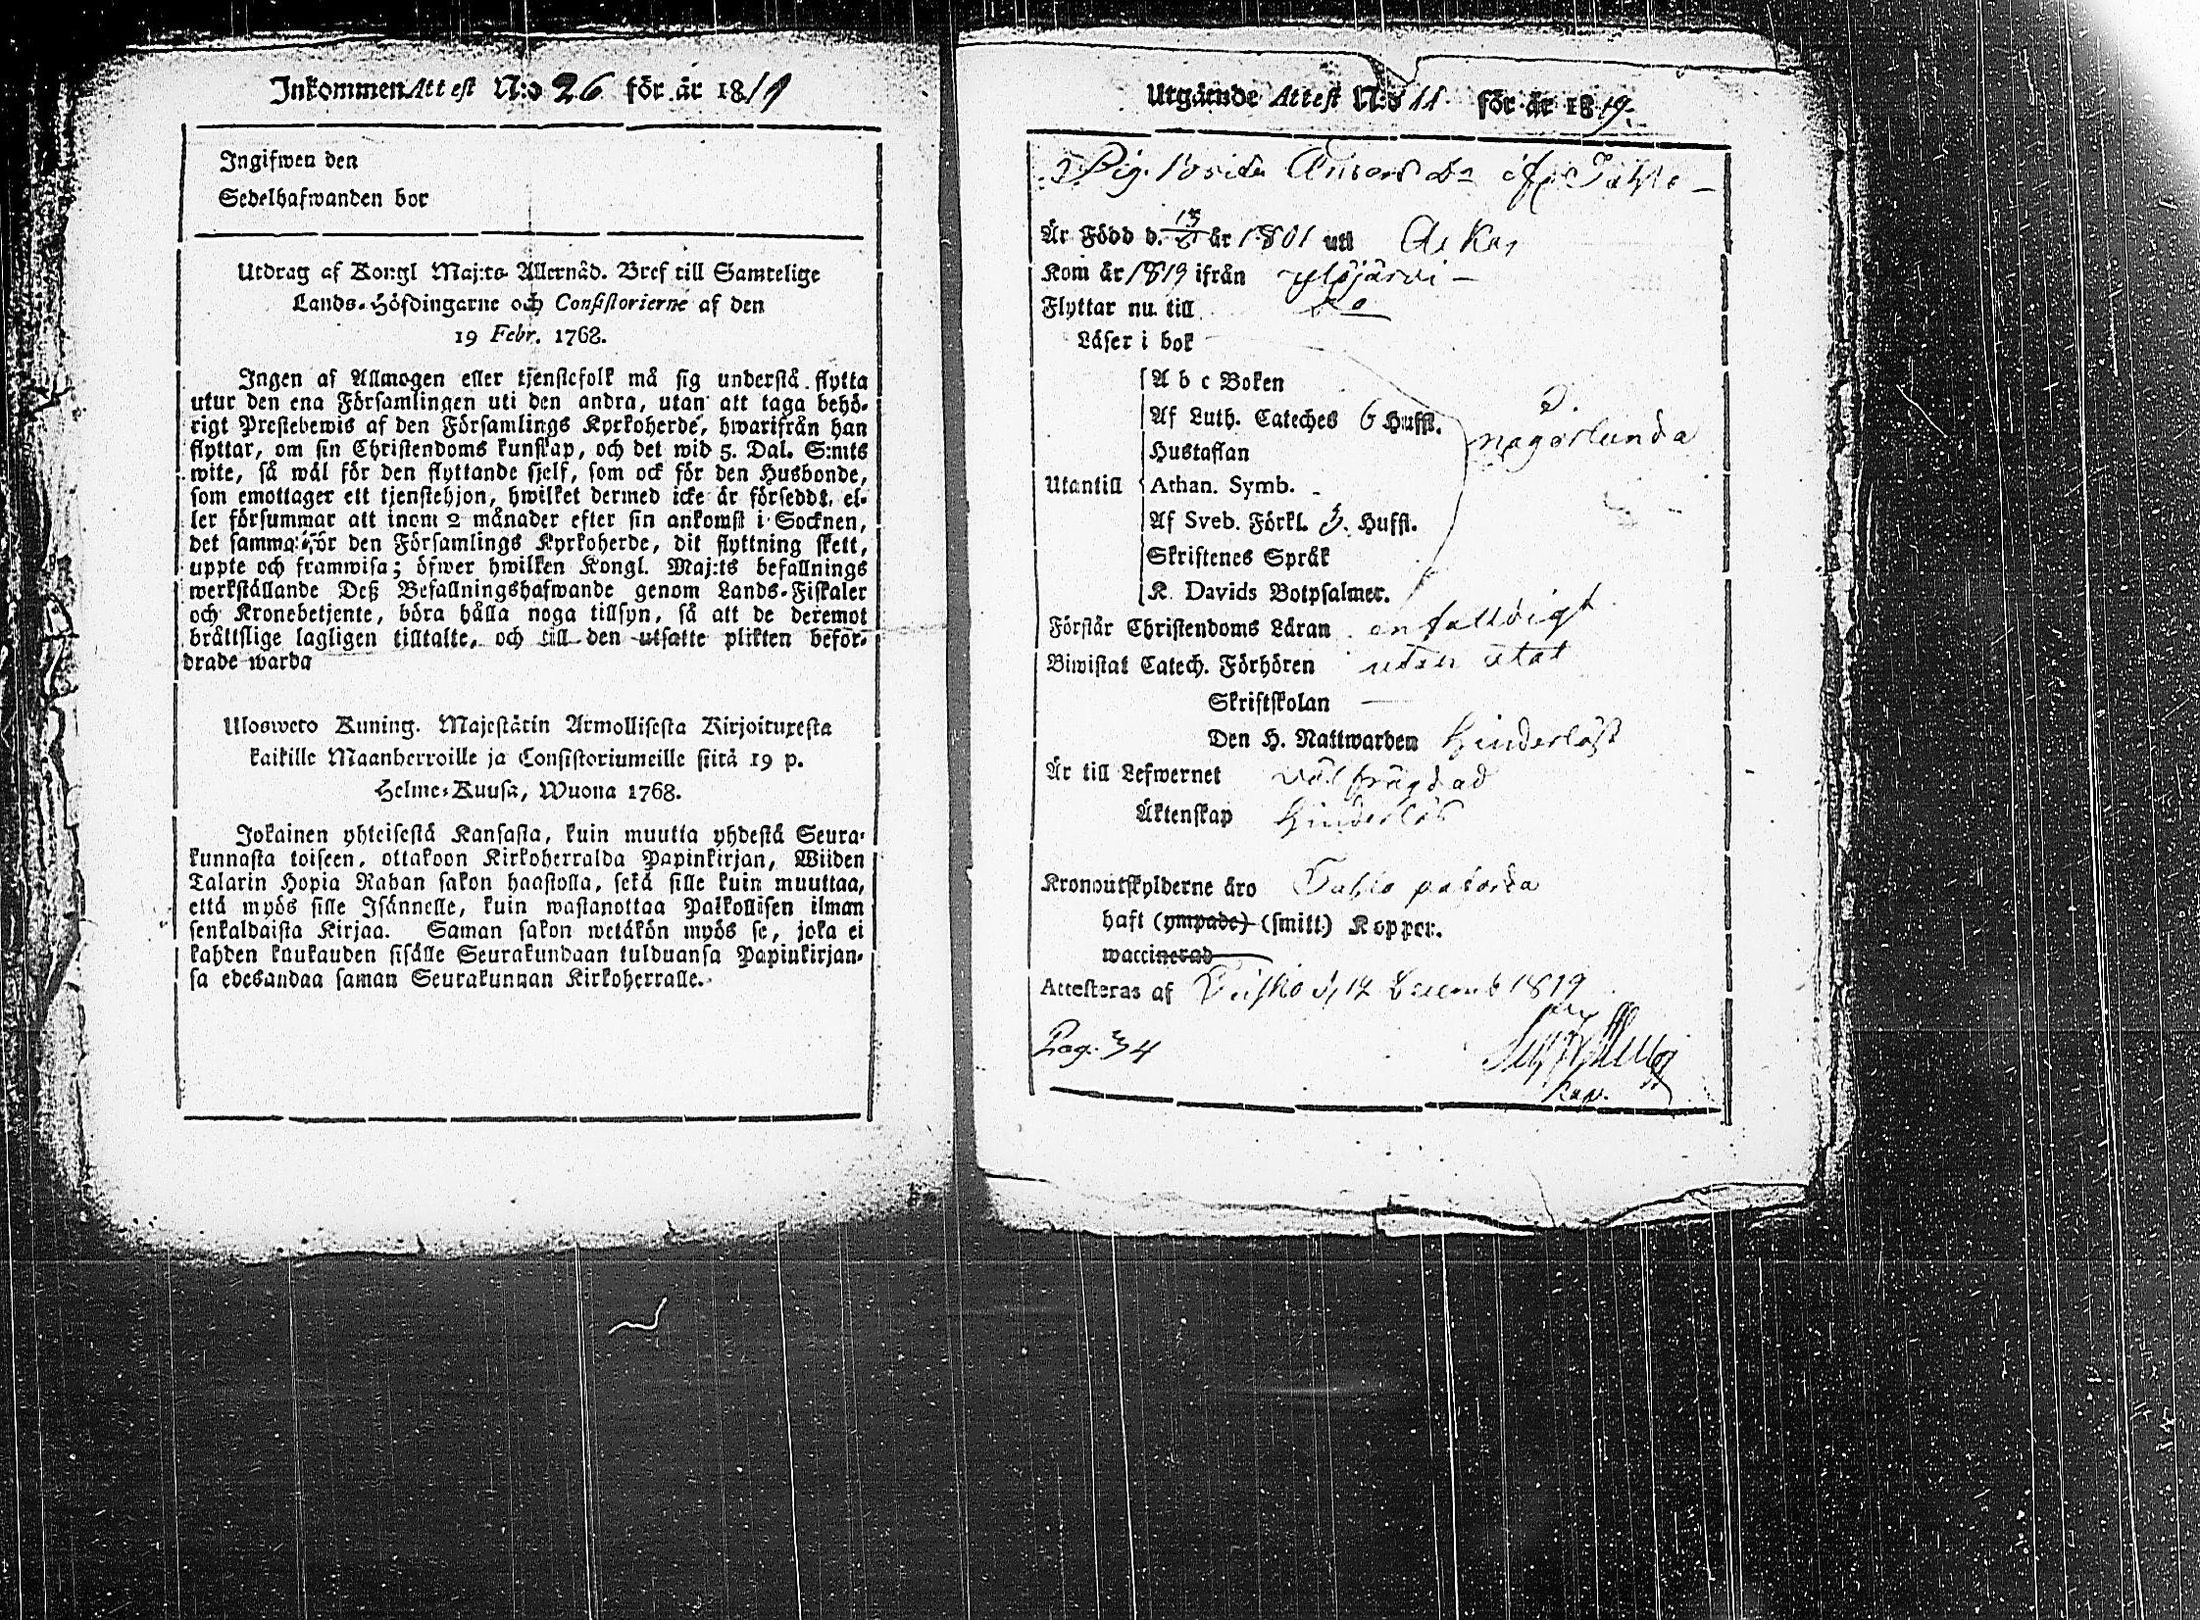 Inkommen Attest N:o 26 för år 1819
Ingifwen den
Sedelhafwanden bor
Utdrag af Kongl Maj:ts Allernåd. Bref till Samtelige
Lands-Höfdingarne och Consistorierne af den
19 Febr. 1768.
Ingen af Allmogen eller tjenstefolk må sig understå flytta
utur den ena Församlingen uti den andra, utan att taga behö-
rigt Prestebewis af den Församlings Kyrkoherde, hwarifrån han
flyttar, om sin Christendoms kunskap, och det wid 5. Dal. S:mts
wite, så wäl för den flyttande sjelf, som ock för den Husbonde,
som emottager ett tjenstehjon, hwilket dermed icke är försedd, el-
ler försummar att inom 2 månader efter sin ankomst i Socknen,
det samma för den Församlings Kyrkoherde, dit flyttning skett,
uppte och framwisa; öfwer hwilken Kongl. Maj:ts befallnings
werkställande Deß Befallningshafwande genom Lands-Fiskaler
och Kronebetjente, böra hålla noga tillsyn, så att de deremot
bråttslige lagligen tilltalte, och till den utsatte plikten beför-
drade warda
Ulosweto Kuning. Majestätin Armollisesta Kirjoituxesta
kaikille Maanherroille ja Consistoriumeille siitä 19 p.
Helme-Kuusa, Wuona 1768.
Jokainen yhteisestä Kansasta, kuin muutta yhdestä Seura-
kunnasta toiseen, ottakoon Kirkoherralda Papinkirjan, Wiiden
Talarin Hopia Rahan sakon haastolla, sekä sille kuin muuttaa,
että myös sille Isännelle, kuin wastanottaa Palkollisen ilman
senkaldaista Kirjaa. Saman sakon wetäkön myös se, joka ei
kahden kuukauden sisälle Seurakundaan tulduansa Papinkirjan-
sa edesandaa saman Seurakunnan Kirkoherralle.
Utgående Attest N:o 11 för år 1819.
Pig. Lovisa Anders dr
Är Född d. 15/8 år 1801 uti
Kom år 1819 ifrån Ylöjärvi
Flyttar nu till Do
Läser i bok
A b c Boken
Af Luth. Cateches 6 Hufst.
någorlunda
Hustaflan
Utantill Athan. Symb.
Af Sveb. Förkl. 3. Hufst.
Skriftenes Språk
K. Davids Botpsalmer.
Förstår Christendoms Läran enfalldigt
Biwistat Catech. Förhören
Skriftskolan
Den H. Nattwarden hinderlöst
Är till Lefwernet välfrägdad
Äktenskap hinderlös
Kronoutskylderne äro
haft (ympade) (smitt) Kopper.
waccinerad
Attesteras af Teisko d. 12 Decemb 1819
Pag. 34
Kap.